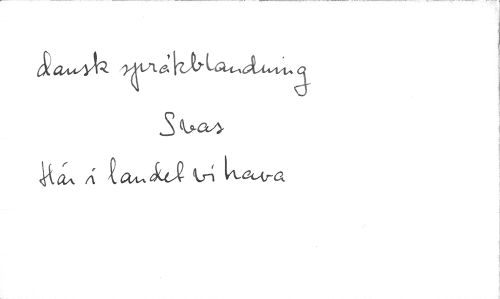 dansk språkblandning
Svas
Här i landet vi hava